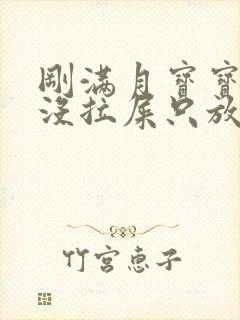 剛滿月寶寶
沒拉屎只放
竹宮惠子